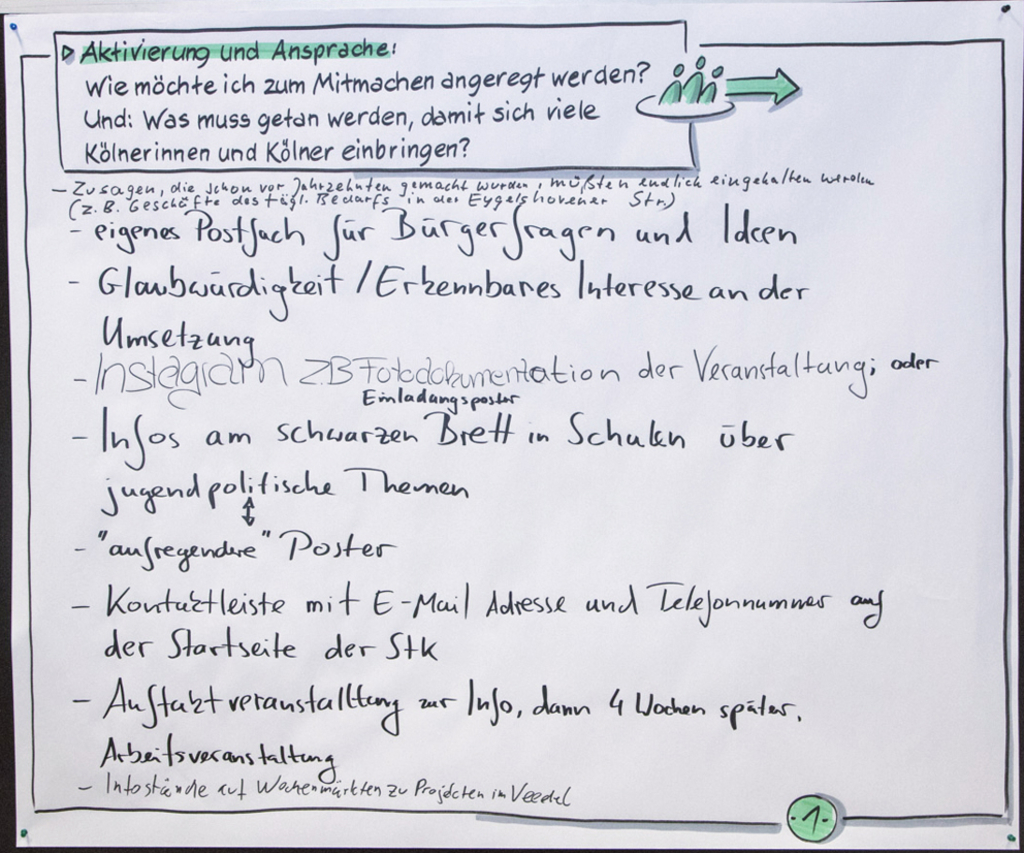 ▷ Aktivierung und Ansprache:
Wie möchte ich zum Mitmachen angeregt werden?
Und: Was muss getan werden, damit sich viele
Kölnerinnen und Kölner einbringen?
– Zusagen, die schon vor Jahrzehnten gemacht wurden, müßten endlich eingehalten werden
(z.B. Geschäfte des tägl. Bedarfs in der Eygelshovener Str.)
- eigenes Postfach für Bürgerfragen und Ideen
- Glaubwürdigkeit / Erkennbares Interesse an der
Umsetzung
- Instagram ZB Fotodokumentation der Veranstaltung; oder
Einladungsposter
- Infos am schwarzen Brett in Schulen über
jugendpolitische Themen
- "aufregendere" Poster
- Kontaktleiste mit E-Mail Adresse und Telefonnummer auf
der Startseite der Stk
- Auftaktveranstalltung zur Info, dann 4 Wochen später.
Arbeitsveranstaltung
- Infostände auf Wochenmärkten zu Projecten im Veedel
-1-